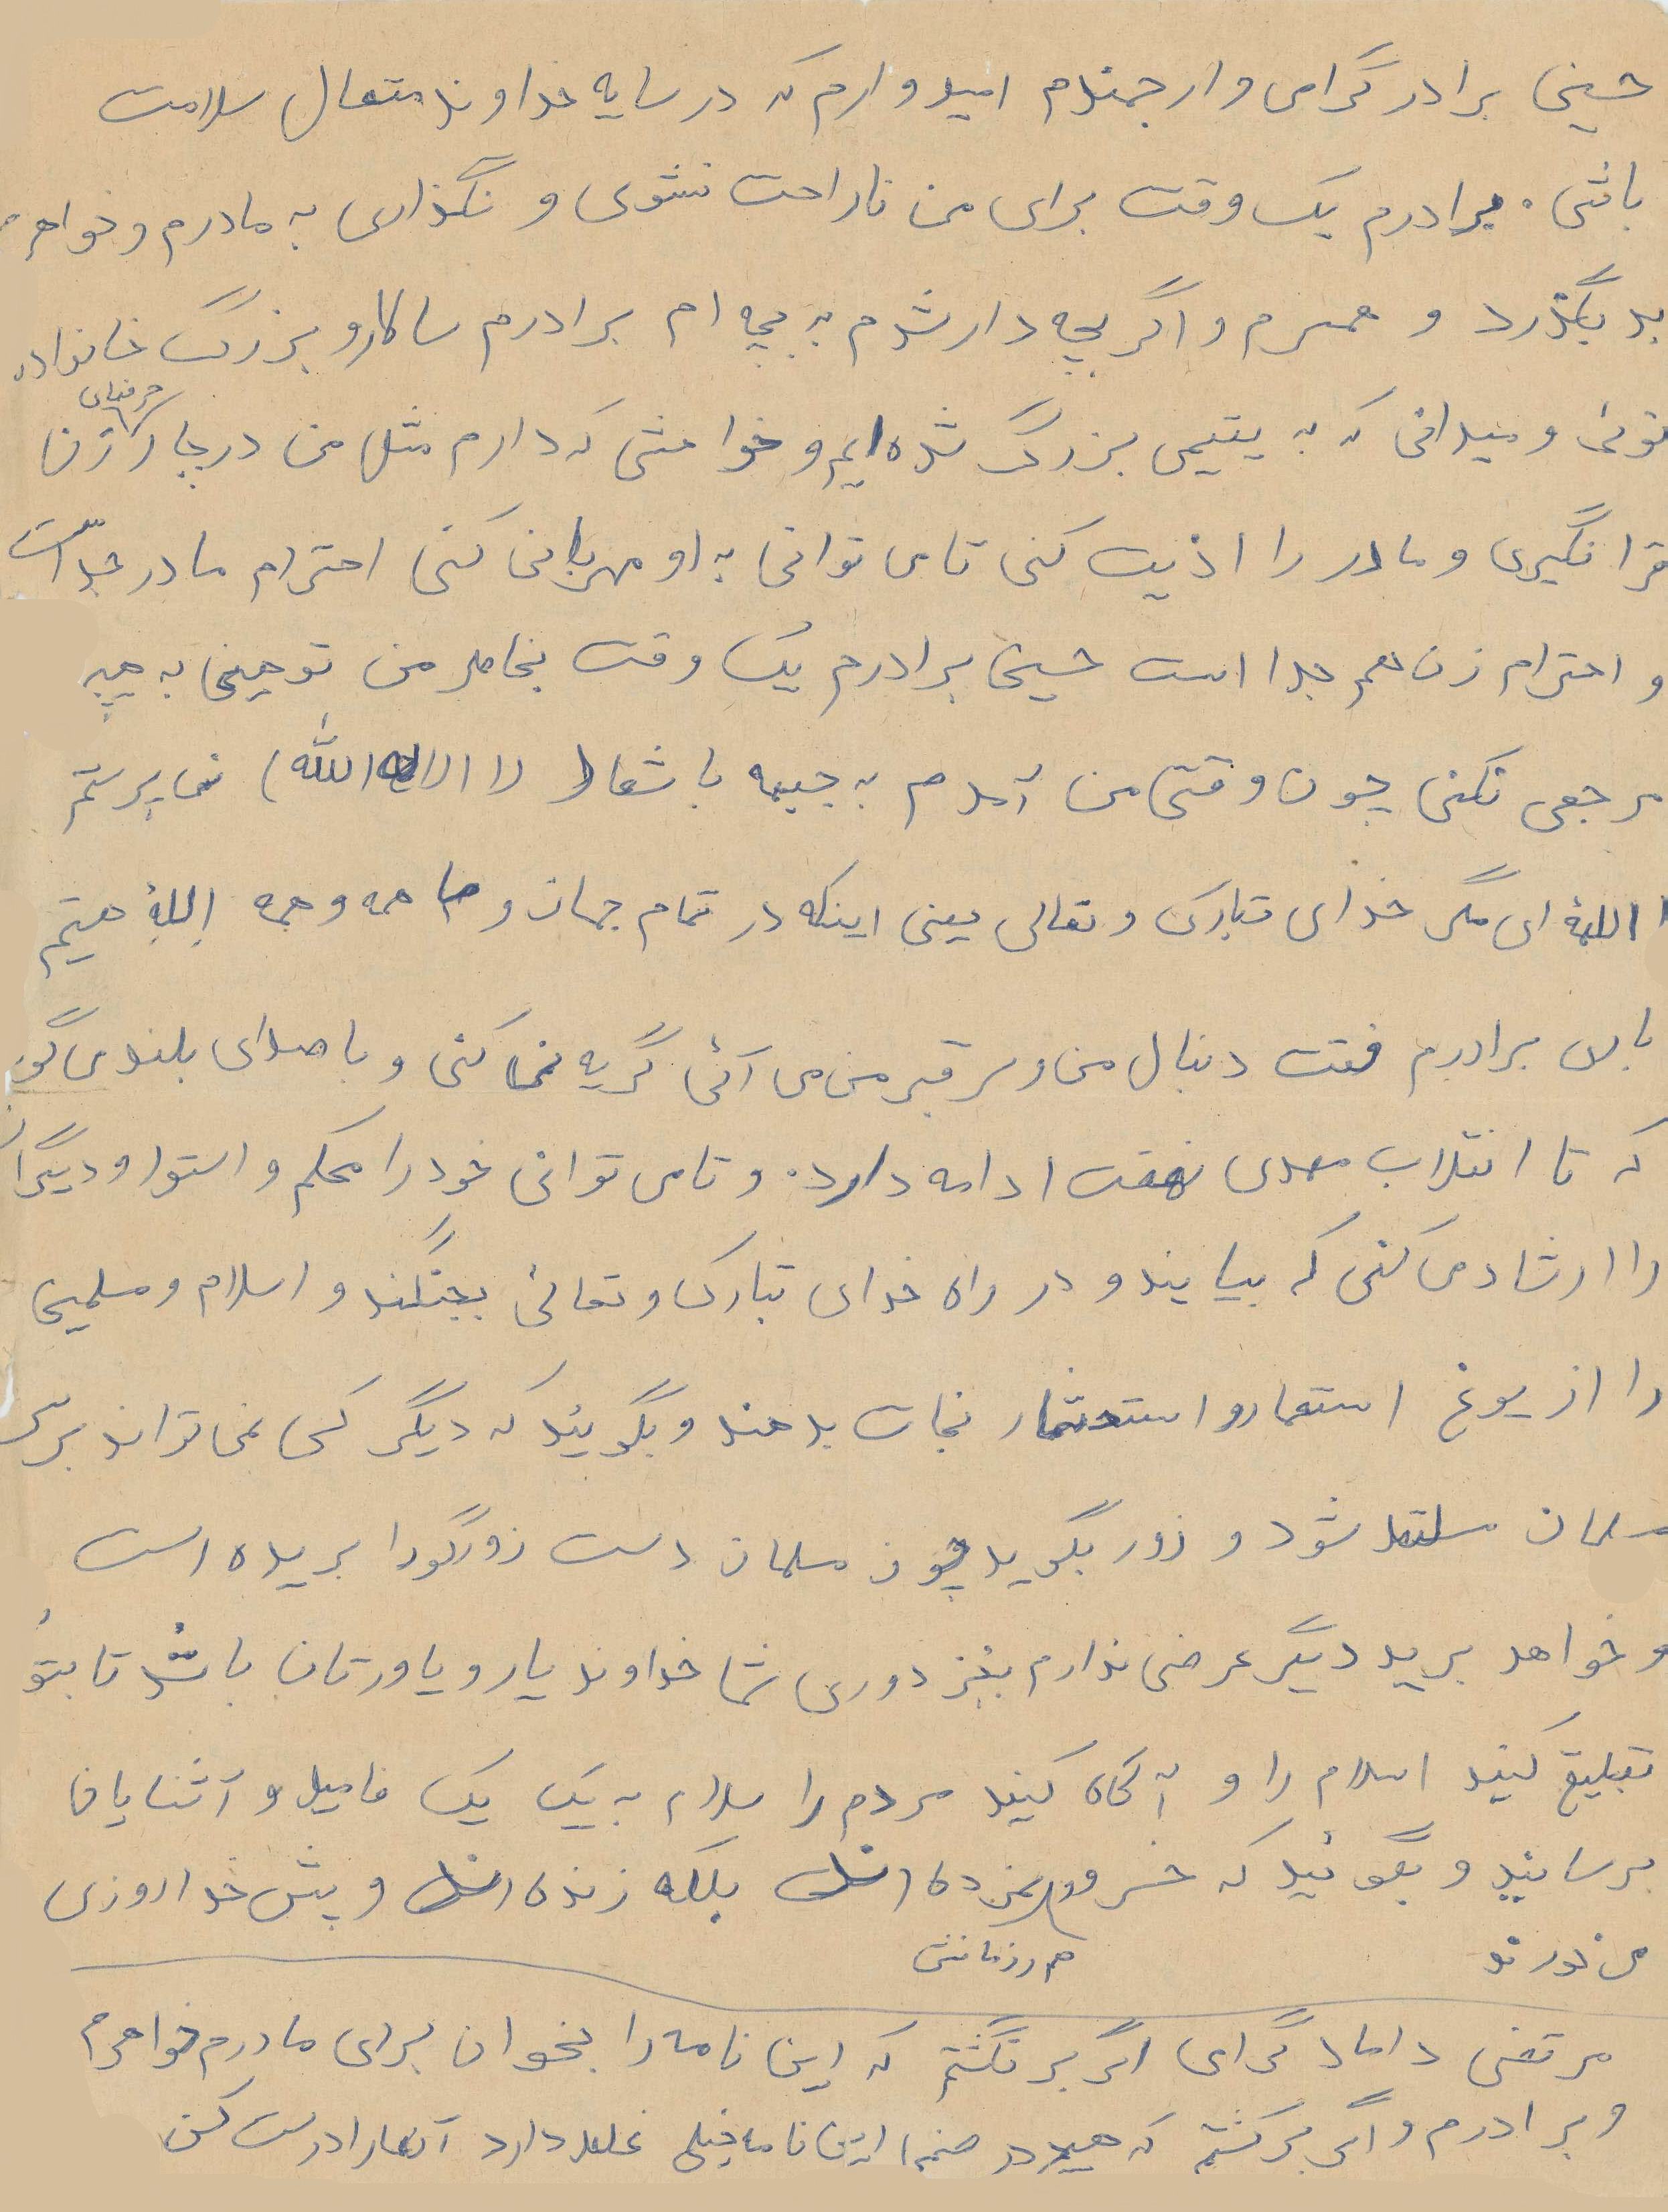 حسین برادر گرامی و ارجمندم امیدوارم که در سایه خداوند متعال سلامت
باشی. برادرم یک وقت برای من ناراحت نشوی و نگذاری به مادرم و خواهرم
بد بگذرد و همسرم و اگر بچه دار شدم به بچه ام برادرم سالار و بزرگ خانواده
توئی و میدانی که به یتیمی بزرگ شده ایم و خواهشی که دارم مثل من در چار حرفهای زن
قرا نگیری و مادر را اذیت کنی تا می توانی به او مهربانی کنی احترام مادر جداست
و احترام زن هم جدا است حسین برادرم یک وقت بخاطر من توهینی به هیچ
مرجعی نکنی چون وقتی من آمدم به جبهه با شعار لا اله الا الله) نمی پرستم
اللهٔ ای مگر خدای تبارک و تعالی یعنی اینکه در تمام جهان و ما همه و همه اللهٔ هستیم
برادرم وقت دنبال من و سر قبر من می آئی گریه نمی کنی و با صدای بلند می گوی
که تا انقلاب مهدی نهضت ادامه دارد. و تا می توانی خود را محکم و استوار و دیگران
را ارشاد می کنی که بیایند و در راه خدای تبارک و تعالیٰ بجنگند و اسلام و مسلمین
را از یوغ استعمار و استثمار نجات بدهند و بگویند که دیگر کسی نمی تواند بر یک
مسلمان مسلط شود و زور بگوید چون مسلمان دست زورگو را بریده است
و خواهد برید دیگر عرضی ندارم بجز دوری شما خداوند یار و یاورتان باشد تا بتو
تبلیغ کنید اسلام را و آگاه کنید مردم را سلام به یک یک فامیل و آشنایان
برسانید و بگوئید که خسرو و هم رزمانش نمرده اند بلکه زنده اند و پیش خدا روزی
می خورند
مرتضی داماد گرامی اگر برنگشتم که این نامه را بخوان برای مادرم خواهرم
و برادرم و اگر برگشتم که هیچ در ضمن این نامه خیلی غلط دارد آنها را درست کن